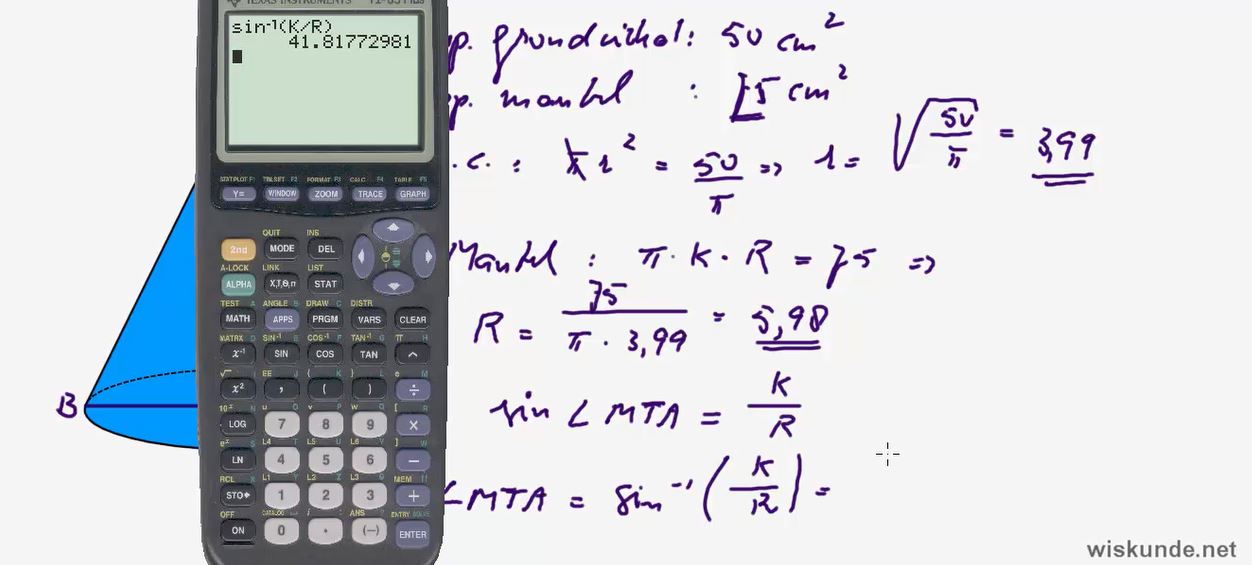 TEXAS INSTRUMENTS
sin⁻¹(K/R)
41.81772981
STATPLOT F1 TBLSET F2 FORMAT F3 CALC F4 TABLE F5
Y= WINDOW ZOOM TRACE GRAPH
QUIT INS
2nd MODE DEL
A-LOCK LINK LIST
ALPHA X,T,θ,n STAT
TEST A ANGLE B DRAW C DISTR
MATH APPS PRGM VARS CLEAR
MATRX D SIN⁻¹ E COS⁻¹ F TAN⁻¹ G π H
x⁻¹ SIN COS TAN ^
√ I EE J { K } L e M
x² , ( ) ÷
10ˣ N u O v P w Q [ R
LOG 7 8 9 ×
eˣ S L4 T L5 U L6 V ] W
LN 4 5 6 −
RCL X L1 Y L2 Z L3 θ MEM "
STO▸ 1 2 3 +
OFF CATALOG i : ANS ? ENTRY SOLVE
ON 0 . (−) ENTER
p. grondcirkel: 50 cm²
p. mantel : 75 cm²
.c. : π r² = 50/π => r = √(50/π) = 3,99
Mantel : π · K · R = 75 =>
R = 75/(π · 3,99) = 5,98
sin ∠MTA = K/R
∠MTA = sin⁻¹(K/R) =
B
wiskunde.net